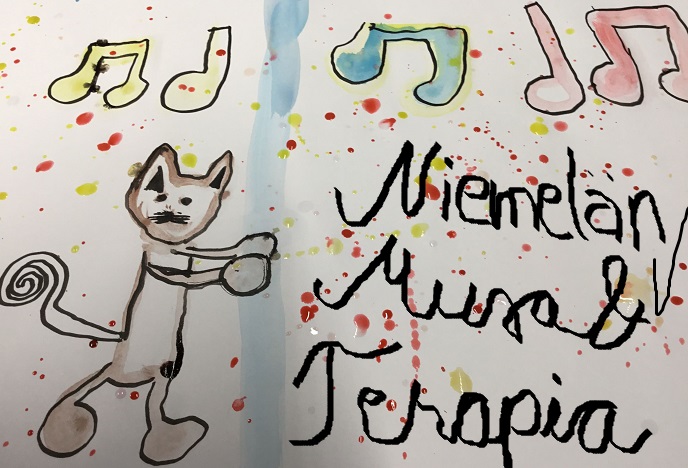 Niemelän
Musa &
Terapia